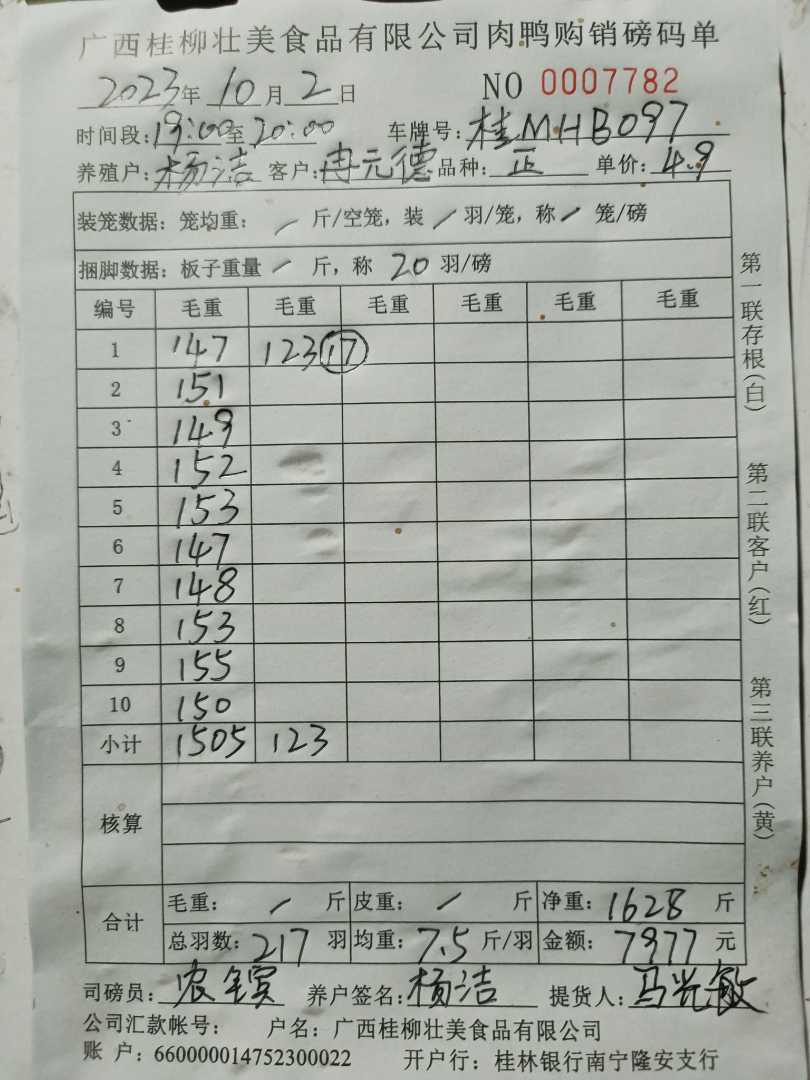 广西桂柳壮美食品有限公司肉鸭购销磅码单
2023年 10月 2日 NO 0007782
时间段:19:00至20:00 车牌号:桂MHB097
养殖户:杨洁 客户:冉元德 品种:正 单价:4.9
装笼数据: 笼均重: / 斤/空笼, 装 / 羽/笼, 称 / 笼/磅
捆脚数据: 板子重量 / 斤, 称 20 羽/磅
编号 毛重 毛重 毛重 毛重 毛重 毛重
1 147 123 17
2 151
3 149
4 152
5 153
6 147
7 148
8 153
9 155
10 150
小计 1505 123
核算
合计
毛重: / 斤 皮重: / 斤 净重: 1628 斤
总羽数: 217 羽 均重: 7.5 斤/羽 金额: 7977 元
司磅员: 养户签名: 杨洁 提货人: 马光敏
公司汇款帐号: 户名: 广西桂柳壮美食品有限公司
账 户: 660000014752300022 开户行: 桂林银行南宁隆安支行
第一联存根(白) 第二联客户(红) 第三联养户(黄)